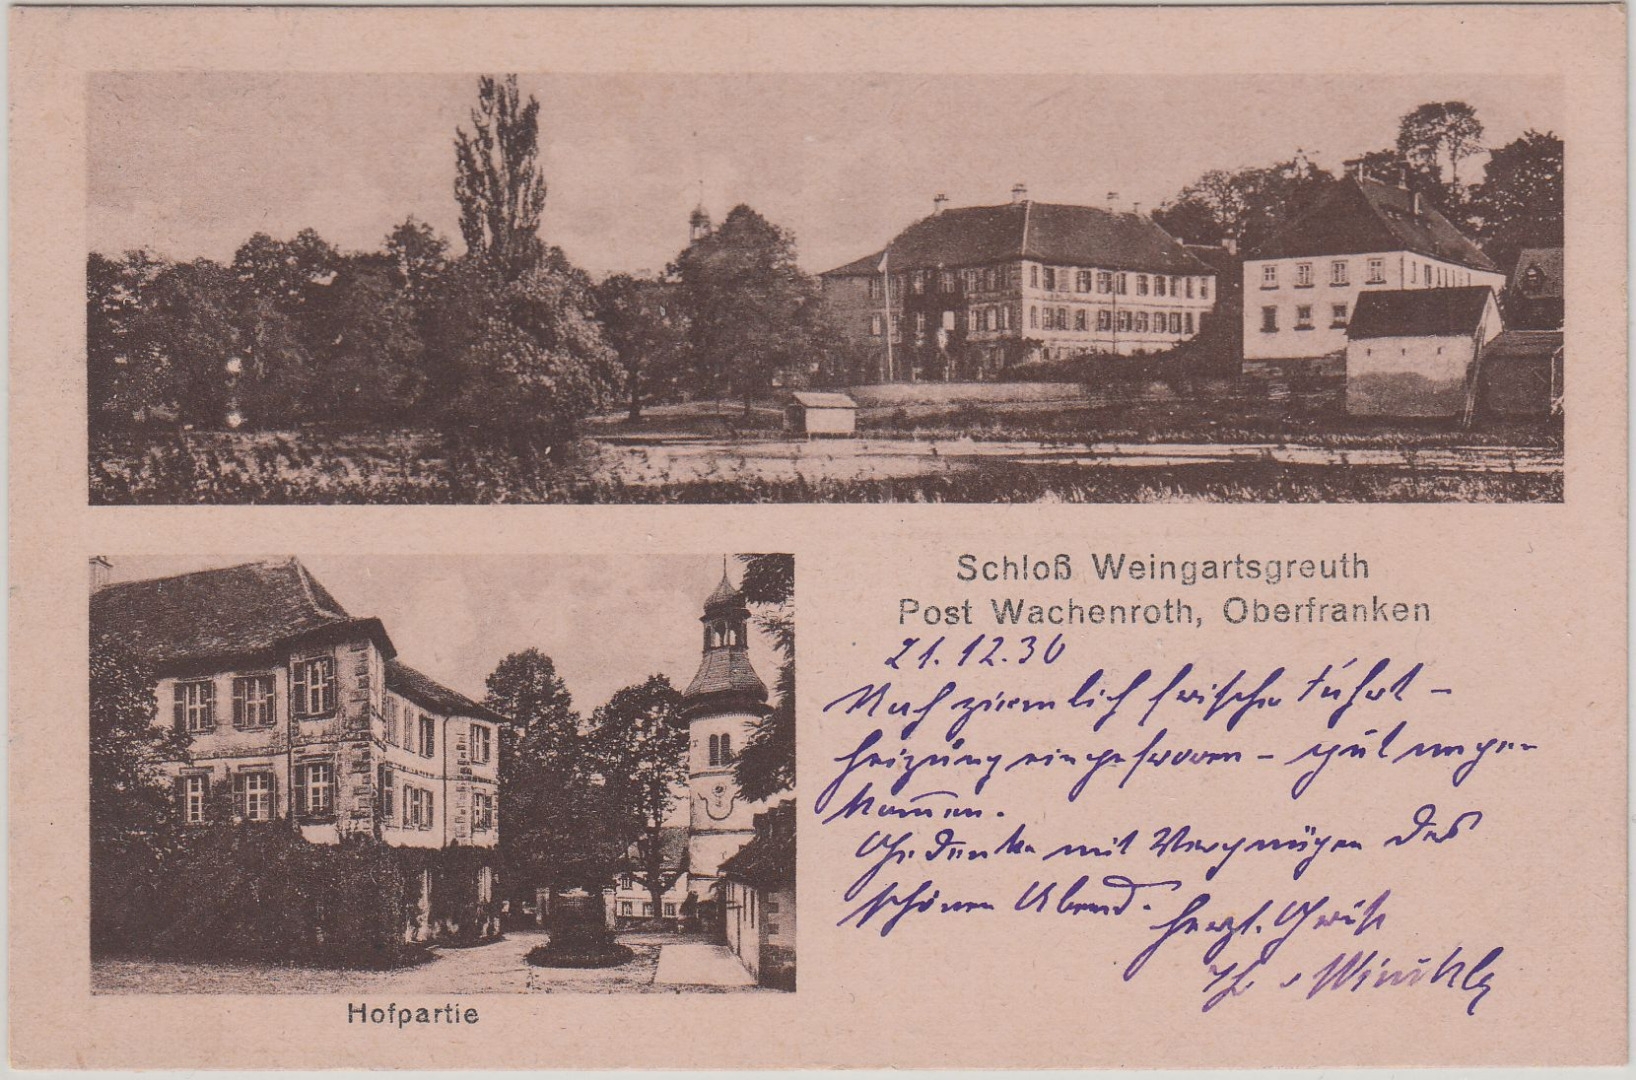 Schloß Weingartsgreuth
Post Wachenroth, Oberfranken
21.12.30
Nach ziemlich frischer Fahrt –
Heizung eingefroren – gut ange-
kom̅en.
Gedenke mit Vergnügen des
schönen Abend.
Herzl. Grüße
Hofpartie